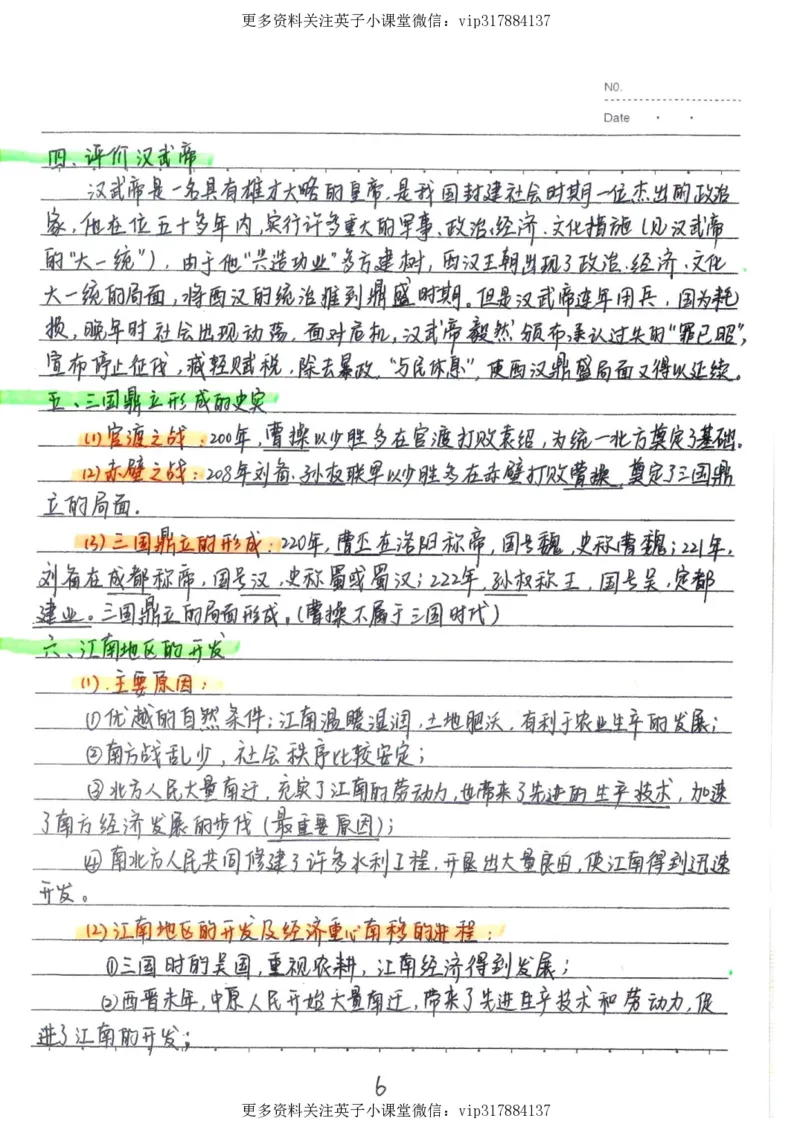 更多资料关注英子小课堂微信：vip317884137
NO.
Date · ·
四、评价汉武帝
汉武帝是一名具有雄才大略的皇帝,是我国封建社会时期一位杰出的政治
家,他在位五十多年内,实行许多重大的军事、政治、经济、文化措施(见汉武帝
的"大一统")，由于他"兴造功业"多方建树，西汉王朝出现了政治、经济、文化
大一统的局面,将西汉的统治推到鼎盛时期。但是汉武帝连年用兵，国力耗
损，晚年时社会出现动荡，面对危机,汉武帝毅然颁布承认过失的"罪已昭",
宣布停止征伐，减轻赋税，除去暴政，"与民休息"，使西汉鼎盛局面又得以延续。
五、三国鼎立形成的史实
(1)官渡之战：200年,曹操以少胜多在官渡打败袁绍,为统一北方奠定了基础。
(2)赤壁之战：208年刘备、孙权联军以少胜多在赤壁打败曹操，奠定了三国鼎
立的局面.
(3)三国鼎立的形成：220年,曹丕在洛阳称帝，国号魏,史称曹魏；221年,
刘备在成都称帝，国号汉,史称蜀或蜀汉；222年,孙权称王，国号吴,定都
建业。三国鼎立的局面形成。(曹操不属于三国时代)
六、江南地区的开发
(1).主要原因：
①优越的自然条件；江南温暖湿润,土地肥沃，有利于农业生产的发展；
②南方战乱少，社会秩序比较安定；
③北方人民大量南迁，充实了江南的劳动力,也带来了先进的生产技术，加速
了南方经济发展的步伐(最重要原因)；
④南北方人民共同修建了许多水利工程,开垦出大量良田,使江南得到迅速
开发。
(2)江南地区的开发及经济重心南移的进程：
①三国时的吴国,重视农耕，江南经济得到发展；
②西晋末年,中原人民开始大量南迁,带来了先进生产技术和劳动力,促
进了江南的开发；
6
更多资料关注英子小课堂微信：vip317884137